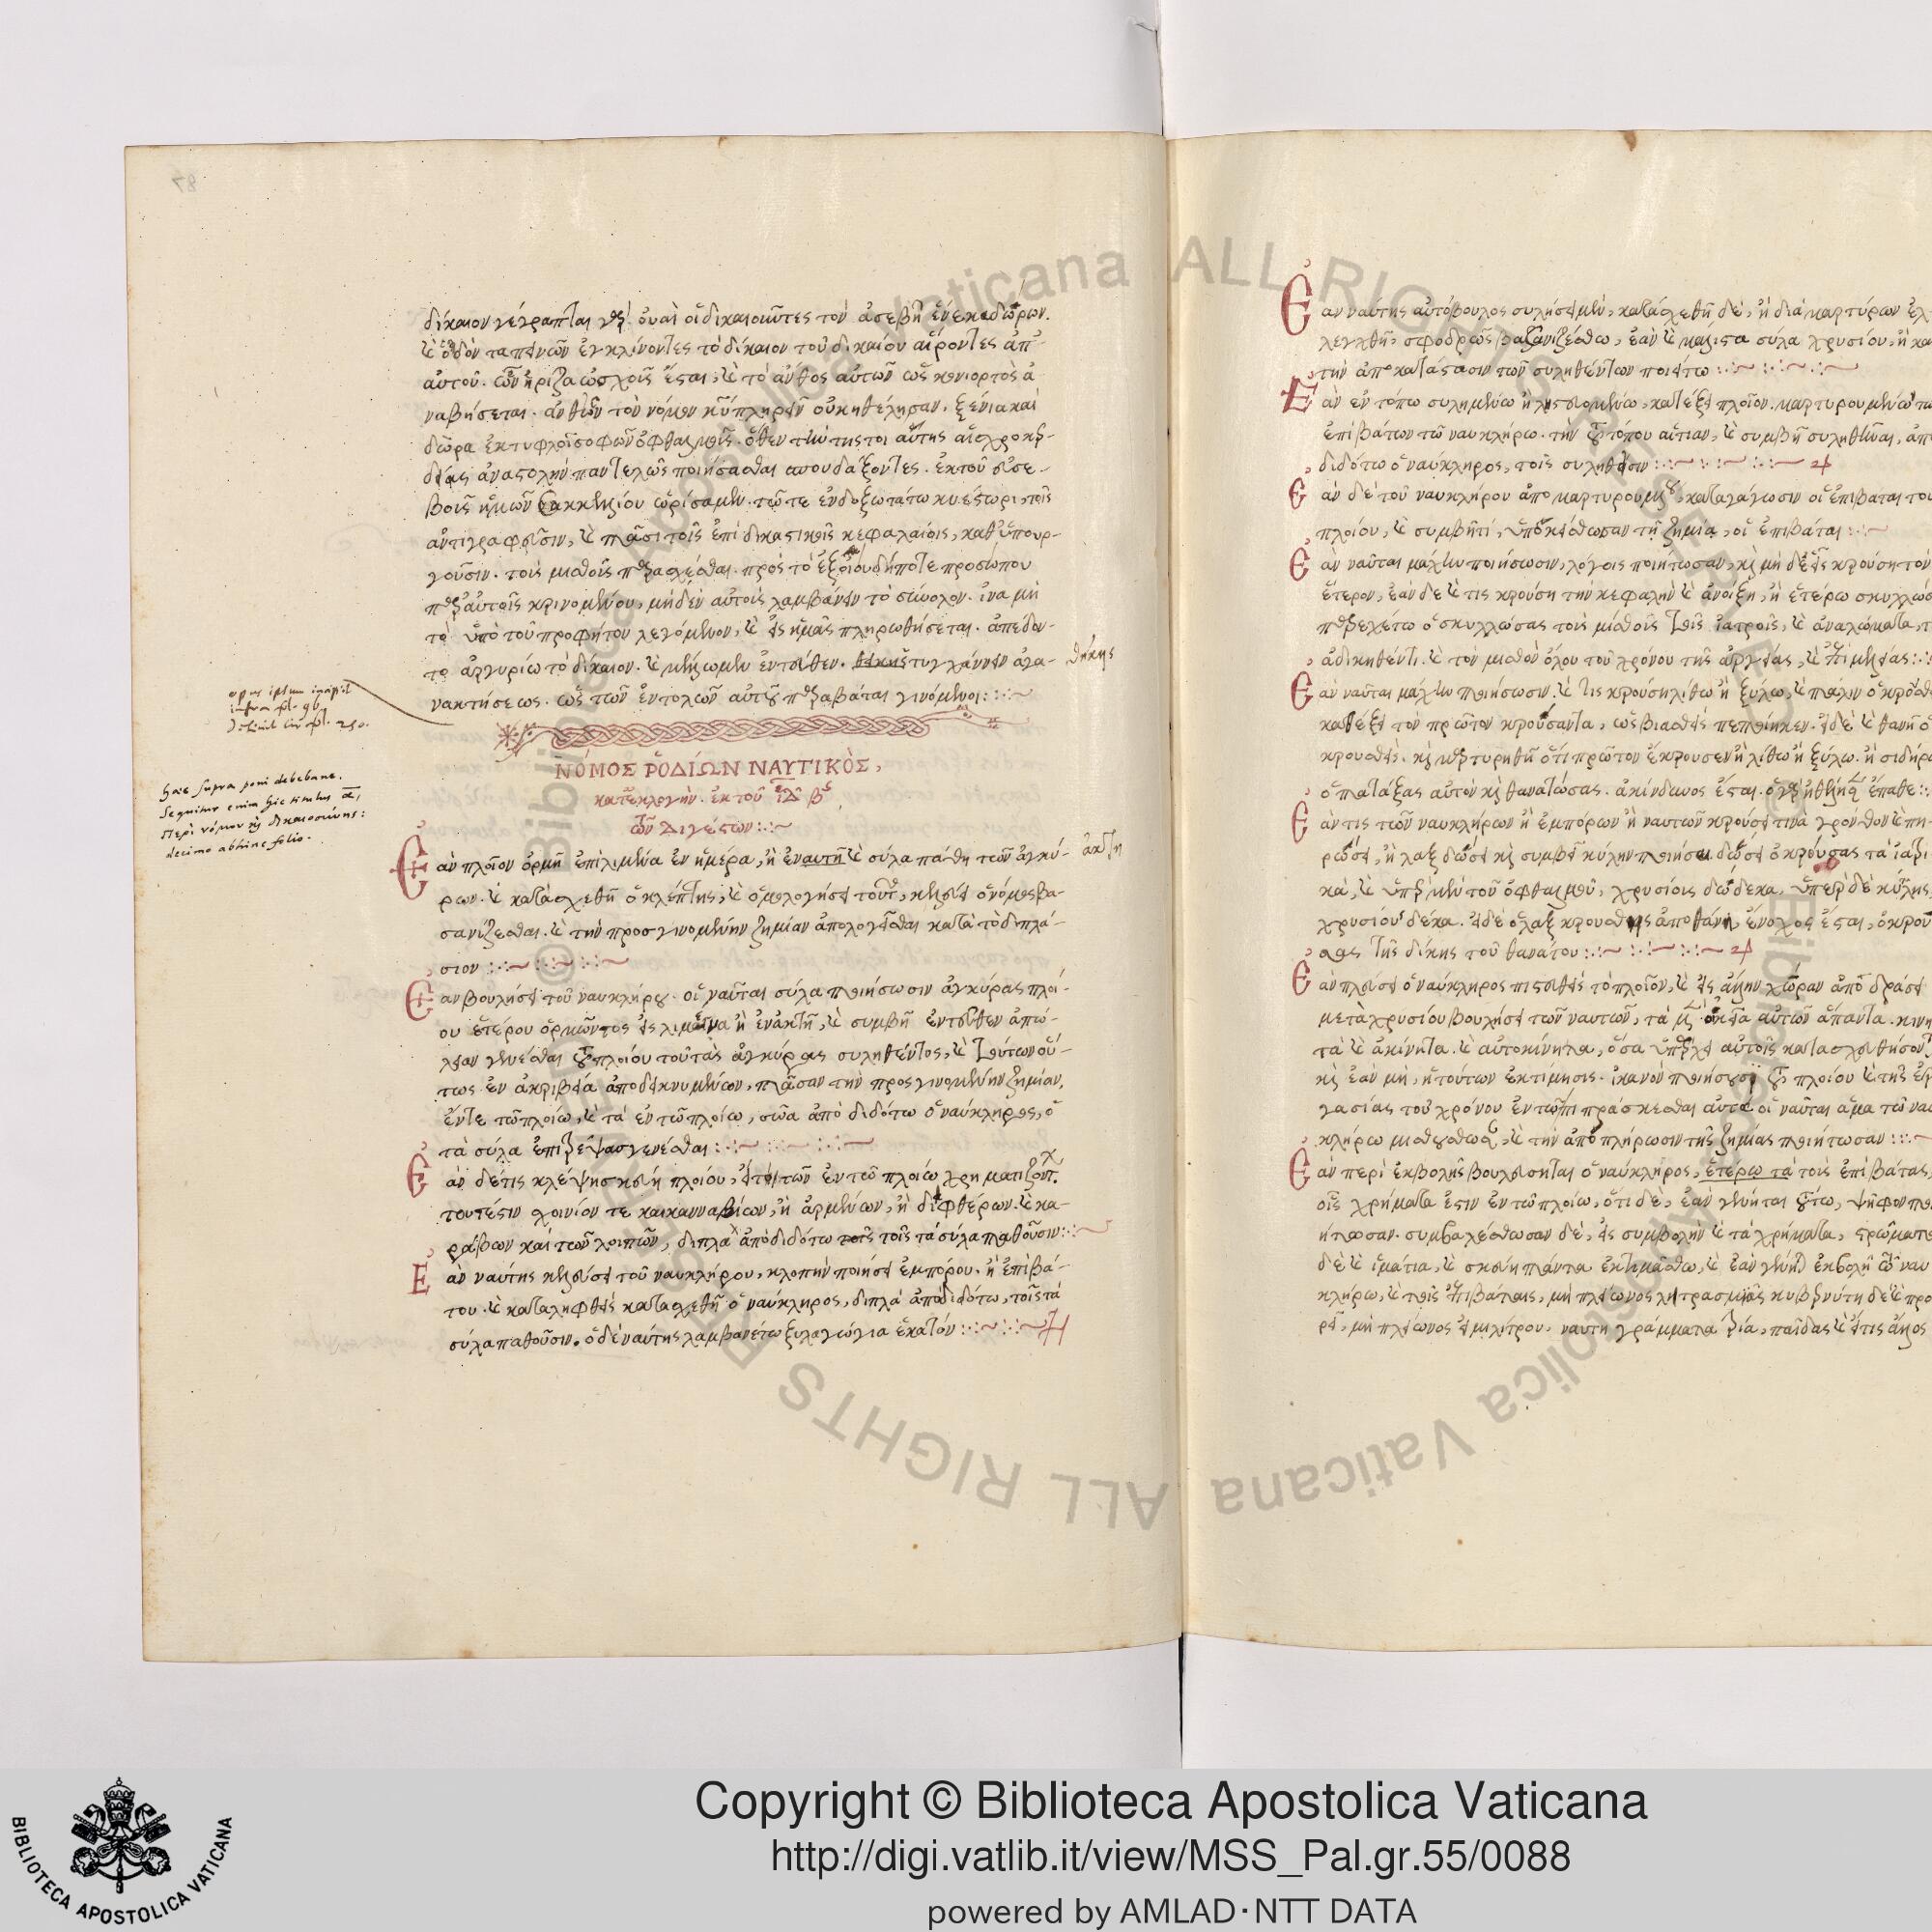 87
δίκαιον γέγραπται γὰρ. οὐαὶ οἱ δικαιοῦντες τὸν ἀσεβῆ ἕνεκα δώρων.
καὶ ὁδὸν ταπεινῶν ἐγκλίνοντες τὸ δίκαιον τοῦ δικαίου αἴροντες ἀπ'
αὐτοῦ. ὧν ἡ ρίζα ὡς χοῦς ἔσται, καὶ τὸ ἄνθος αὐτῶν ὡς κονιορτὸς ἀ
ναβήσεται. ἀνθ' ὧν τὸν νόμον κυρίου πληρεῖν οὐκ ἠθέλησαν. ξένια καὶ
δῶρα ἐκτυφλοῖ σοφῶν ὀφθαλμοὺς. ὅθεν τὴν τῆς τοιαύτης αἰσχροκερ-
δείας ἀναστολὴν παντελῶς ποιήσασθαι σπουδάζοντες. ἐκ τοῦ εὐσε-
βοῦς ἡμῶν σακκελλίου ὡρίσαμεν. τῶ τε ἐνδοξωτάτω κυέστωρι, τοῖς
ἀντιγραφεῦσιν, καὶ πᾶσι τοῖς ἐπὶ δικαστικοῖς κεφαλαίοις, καθυπουρ-
γοῦσιν. τοὺς μισθοὺς παρασχέσθαι. πρὸς τὸ ἐξ οἱουδήποτε προσώπου
παρ' αὐτοῖς κρινομένου, μηδὲν αὐτοὺς λαμβάνειν τὸ σύνολον. ἵνα μὴ
τὸ ὑπὸ τοῦ προφήτου λεγόμενον, καὶ εἰς ἡμᾶς πληρωθήσεται. ἀπέδον-
το ἀργυρίω τὸ δίκαιον. καὶ μείζωμεν ἐντεῦθεν. τυγχάνειν ἀγα-
θήκης
νακτήσεως. ὡς τῶν ἐντολῶν αὐτοῦ παραβάται γινόμενοι:
opus ipsum
infra fol. 96
250.
ΝΌΜΟΣ ῬΟΔΊΩΝ ΝΑΥΤΙΚῸΣ,
κατ' ἐκλογὴν. ἐκ τοῦ ιδ β
τῶν Διγέστων:
Haec supra poni debebant.
Sequitur enim hic titulus α,
Περὶ νόμου καὶ δικαιοσύνης:
decimo abhinc folio.
Ἐὰν πλοῖον ὁρμῆ ἐπὶ λιμένα ἐν ἡμέρα, ἢ ἐν αυτῆ καὶ σύλα πάθη τῶν ἀγκύ-
ἀκτῆ
ρων. καὶ κατασχεθῆ ὁ κλέπτης, καὶ ὁμολογήσει τοῦτο, κελεύει ὁ νόμος βα-
σανίζεσθαι. καὶ τὴν προσγινομένην ζημίαν ἀπολογεῖσθαι κατὰ τὸ διπλά-
σιον
Ἐὰν βουλήσει τοῦ ναυκλήρου. οἱ ναῦται σύλα ποιήσωσιν ἀγκύρας πλοί-
ου ἑτέρου ὁρμῶντος εἰς λιμένα ἢ ἐν ἀκτῆ, καὶ συμβῆ ἐντεῦθεν ἀπώ-
λειαν γενέσθαι τοῦ πλοίου τοῦ τὰς ἀγκύρας συληθέντος, καὶ τούτων οὕ-
τως ἐν ἀκριβεία ἀποδεικνυμένων, πᾶσαν τὴν προσγινομένην ζημίαν,
ἔν τε τῶ πλοίω, καὶ τὰ ἐν τῶ πλοίω, σῶα ἀποδιδότω ὁ ναύκληρος, ὁ
τὰ σύλα ἐπιτρέψας γενέσθαι:
Ἐὰν δέ τις κλέψη σκεύη πλοίου, ἤ τι τῶν ἐν τῶ πλοίω χρηματιζόντ.
τουτέστιν σχοινίον τε καὶ κανναβίων, ἢ ἀρμένων, ἢ διφθέρων. καὶ κα-
ράβων καὶ τῶν λοιπῶν, διπλᾶ ἀποδιδότω τοῖς τὰ σύλα παθοῦσιν:
Ἐὰν ναύτης κελεύσει τοῦ ναυκλήρου, κλοπὴν ποιήσει ἐμπόρου. ἢ ἐπιβά-
του. καὶ καταληφθεὶς κατασχεθῆ ὁ ναύκληρος, διπλᾶ ἀποδιδότω, τοῖς τὰ
σύλα παθοῦσιν. ὁ δὲ ναύτης λαμβανέτω ξυλαγώγια ἑκατόν
Ἐὰν ναύτης αὐτόβουλος συλήσει μὲν, κατασχεθῆ δὲ, ἢ διὰ μαρτύρων ἐλ-
λεγχθῆ, σφοδρῶς βαζανιζέσθω, ἐὰν καὶ μάλιστα σύλα χρυσίου, ἢ κα
τὴν ἀποκατάστασιν τῶν συληθέντων ποιείτω
Ἐὰν ἐν τόπω συλημένω ἢ ληστευομένω, κατέξει πλοῖον. μαρτυρουμένω τῶ
ἐπιβάτων τῶ ναυκλήρω. τὴν τοῦ τόπου αἰτίαν, καὶ συμβῆ συληθῆναι, ἀπ
διδότω ὁ ναύκληρος, τοῖς συληθεῖσιν
Ἐὰν δὲ τοῦ ναυκλήρου ἀπομαρτυρουμένου. καταγάγωσιν οἱ ἐπιβάται του
πλοίου, καὶ συμβῆ τί, ὑποκείσθωσαν τῆ ζημία, οἱ ἐπιβάται
Ἐὰν ναῦται μάχην ποιήσωσιν, λόγοις ποιήτωσαν, καὶ μηδεὶς κρούση τὸν
ἕτερον, ἐὰν δὲ καὶ τις κρούση τὴν κεφαλὴν καὶ ἀνοίξη, ἢ ἑτέρω σκυλλώσ
παρεχέτω ὁ σκυλλώσας τοὺς μίσθους τοῖς ἰατροῖς, καὶ ἀναλώματα, τ
ἀδικηθέντι. καὶ τὸν μισθὸν ὅλου τοῦ χρόνου τῆς ἀργείας, καὶ ἐπιμελείας:
Ἐὰν ναῦται μάχην ποιήσωσιν. καὶ τις κρούση λίθω ἢ ξύλω, καὶ πάλιν ὁ κρουσθ
κατέξει τὸν πρῶτον κρούσαντα, ὡς βιασθεὶς πεποίηκεν. εἰ δὲ καὶ θανῆ ὁ
κρουσθεὶς. καὶ μαρτυρηθῆ ὅτι πρῶτον ἔκρουσεν ἢ λίθω ἢ ξύλω. ἢ σιδήρω
ὁ πατάξας αὐτὸν καὶ θανατώσας. ἀκίνδυνος ἔσται. ὃ γὰρ ἤθελησε ἔπαθε:
Ἐάν τις τῶν ναυκλήρων ἢ ἐμπόρων ἢ ναυτῶν κρούσει τινὰ γρόνθον καὶ πη-
ρώσει, ἢ λὰξ δώσει καὶ συμβεῖ κύλην ποιήσαι, δώσει ὁ κρούσας τὰ ἰατρι
κὰ, καὶ ὑπὲρ μὲν τοῦ ὀφθαλμοῦ, χρυσίους δώδεκα, ὑπὲρ δὲ κύλης,
χρυσίου δέκα. εἰ δὲ ὁ λὰξ κρουσθεὶς ἀποθάνη, ἔνοχος ἔσται, ὁ κρού
σας τῆς δίκης τοῦ θανάτου
Ἐὰν πλεύσει ὁ ναύκληρος πιστευθεὶς τὸ πλοῖον, καὶ εἰς ἄλλην χώραν ἀποδράσει
μετὰ χρυσίου βουλήσει τῶν ναυτῶν, τὰ αὐτῶν ἅπαντα. κινη
τὰ καὶ ἀκίνητα. καὶ αὐτοκίνητα, ὅσα ὑπάρχει αὐτοῖς κατασχευθήσονται
καὶ ἐὰν μὴ, ἡ τούτων ἐκτίμησις. ἱκανὸν ποιήσουσι τοῦ πλοίου καὶ τῆς ἐρ
γασίας τοῦ χρόνου ἐν τῶ πιπράσκεσθαι αὐτὰ οἱ ναῦται ἅμα τῶ ναυ
κλήρω μισθούσθωσαν, καὶ τὴν ἀποπλήρωσιν τῆς ζημίας ποιήτωσαν
Ἐὰν περὶ ἐκβολῆς βουλεύσηται ὁ ναύκληρος, ἑτέρω τὰ τοὺς ἐπιβάτας,
οἷς χρήματα ἔστιν ἐν τῶ πλοίω, ὅτι δὲ, ἐὰν γένηται τοῦτο, ψῆφον ποι
ήτωσαν. συμβαλέσθωσαν δὲ, εἰς συμβολὴν καὶ τὰ χρήματα, στρώματα
δὲ καὶ ἱμάτια, καὶ σκεύη πάντα ἐκτιμάσθω, καὶ ἐὰν γένηται ἐκβολὴ τῶ ναυ
κλήρω, καὶ τοῖς ἐπιβάταις, μὴ πλείωνος λίτρας μιᾶς κυβερνύτη δὲ καὶ προ
ρεῖ, μὴ πλείωνος ἡμιλίτρου. ναύτη γράμματα τρία, παῖδας καὶ εἴ τις ἄλλος
© Biblioteca Apostolica Vaticana ALL RIGHTS
Copyright © Biblioteca Apostolica Vaticana
http://digi.vatlib.it/view/MSS_Pal.gr.55/0088
powered by AMLAD·NTT DATA
BIBLIOTECA APOSTOLICA VATICANA